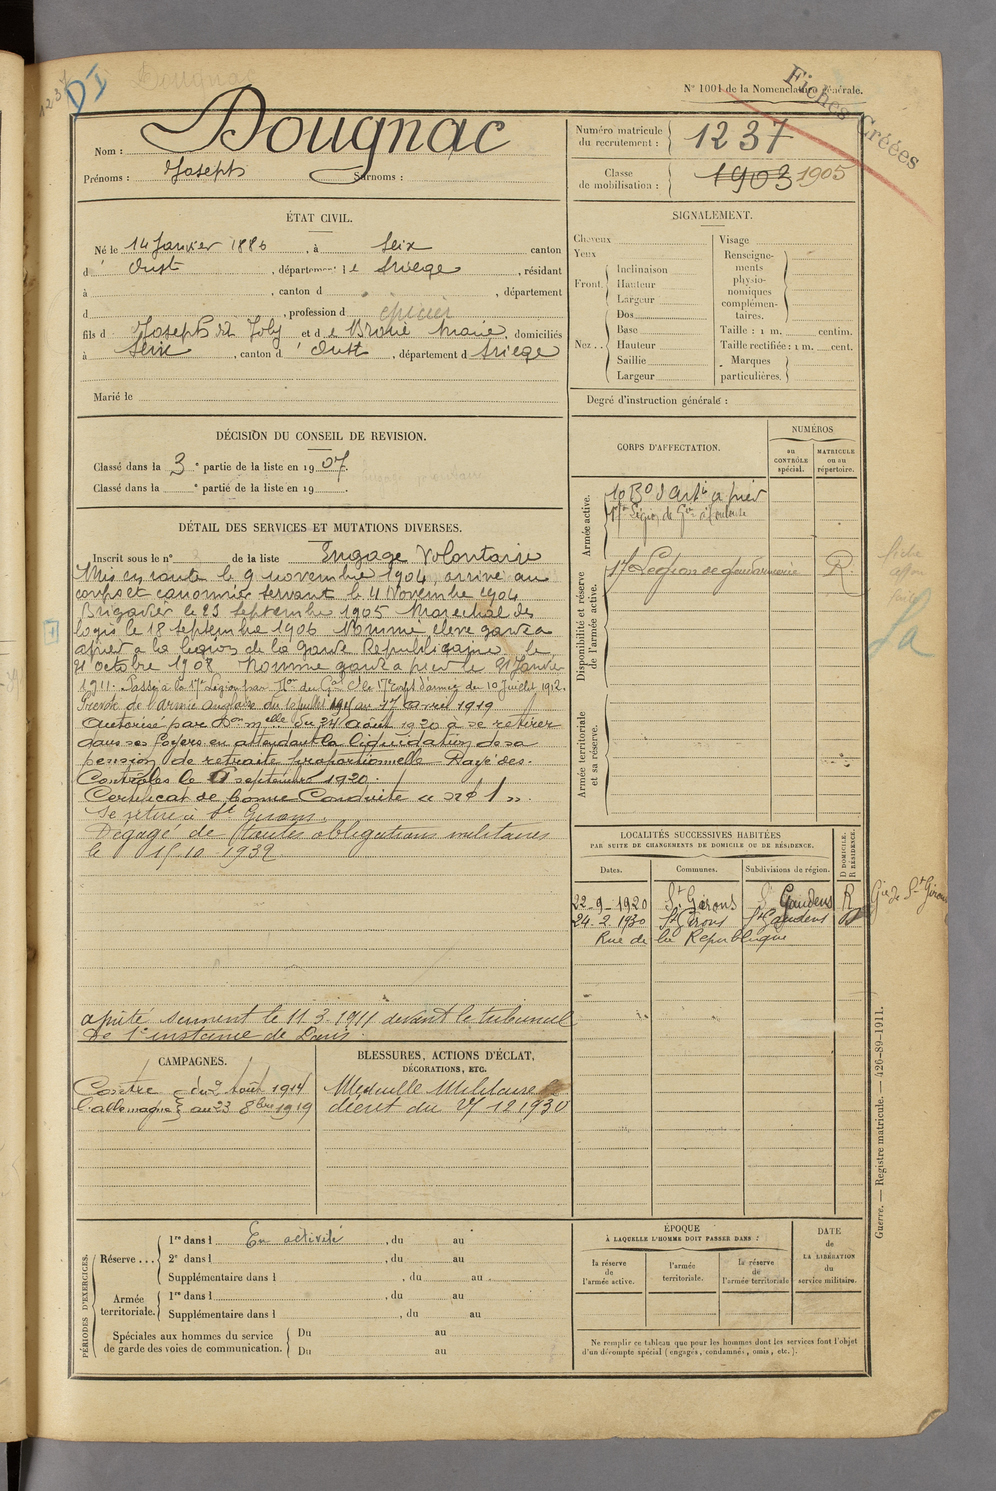 1237
DI
Dougnac
N° 1001 de la Nomenclature générale.
Fiches Créées
Nom : Dougnac
Prénoms : Joseph Surnoms :
Numéro matricule du recrutement : 1237
Classe de mobilisation : 1903 1905
ÉTAT CIVIL.
Né le 14 Janvier 1886, à Seix canton
d' Oust, département de l'Ariège, résidant
à , canton d , département
d , profession d épicier
fils d Joseph dit Joly et de Broué Marie, domiciliés
à Seix, canton d' Oust, département d Ariège
Marié le
SIGNALEMENT.
Cheveux
Yeux
Front. Inclinaison
Hauteur
Largeur
Nez .. Dos
Base
Hauteur
Saillie
Largeur
Visage
Renseigne-
ments
physio-
nomiques
complémen-
taires.
Taille : 1 m. centim.
Taille rectifiée : 1 m. cent.
Marques
particulières.
Degré d'instruction générale :
DÉCISION DU CONSEIL DE REVISION.
Classé dans la 3e partie de la liste en 1907.
Classé dans la e partie de la liste en 19 .
DÉTAIL DES SERVICES ET MUTATIONS DIVERSES.
Inscrit sous le n° de la liste Engagé Volontaire
Mis en route le 9 novembre 1904, arrivé au
corps et canonnier servant le 11 Novembre 1904
Brigadier le 23 septembre 1905 Maréchal des
logis le 18 septembre 1906 Nommé élève garde
à pied à la légion de la Garde Républicaine le
21 octobre 1908 Nommé garde à pied le 21 Janvier
1911. Passé à la 17e Légion par Don du Gal Ct le 17e corps d'armée du 10 Juillet 1912.
Prévôté de l'armée anglaise du juillet au 17 avril 1919
Autorisé par Don Melle du 24 Août 1920 à se retirer
dans ses foyers en attendant la liquidation de sa
pension de retraite proportionnelle - Rayé des
Contrôles le septembre 1920.
Certificat de bonne Conduite " n° 1 ".
Se retire à St Girons.
Dégagé de toutes obligations militaires
le 15.10.1932
a prêté serment le 11.3.1911 devant le tribunal
de 1e instance de Paris.
CORPS D'AFFECTATION.
NUMÉROS
au CONTRÔLE spécial.
MATRICULE ou au répertoire.
Armée active.
10 Bon d'Artie à pied
17e Légion de Gie à Toulouse
Disponibilité et réserve de l'armée active.
17 Légion de gendarmerie R.
fiche
Armée territoriale et sa réserve.
LOCALITÉS SUCCESSIVES HABITÉES
PAR SUITE DE CHANGEMENTS DE DOMICILE OU DE RÉSIDENCE.
D DOMICILE.
R RÉSIDENCE.
Dates. Communes. Subdivisions de région.
22-9-1920 St Girons St Gaudens R Gie de St Girons
24.2.1930 St Girons St Gaudens D
Rue de la République
CAMPAGNES.
Contre du 2 août 1914
l'allemagne au 23 8bre 1919
BLESSURES, ACTIONS D'ÉCLAT,
DÉCORATIONS, ETC.
Médaille Militaire
décret du 27 12 1930
PÉRIODES D'EXERCICES.
Réserve ... 1re dans l En activité, du au
2e dans l , du au
Supplémentaire dans l , du au .
Armée territoriale. 1re dans l , du au
Supplémentaire dans l , du au
Spéciales aux hommes du service
de garde des voies de communication. Du au
Du au
ÉPOQUE
À LAQUELLE L'HOMME DOIT PASSER DANS :
la réserve de l'armée active.
l'armée territoriale.
la réserve de l'armée territoriale
DATE
de
LA LIBÉRATION
du
service militaire.
Ne remplir ce tableau que pour les hommes dont les services font l'objet
d'un décompte spécial (engagés, condamnés, omis, etc.).
Guerre. — Registre matricule. — 426-89-1911.